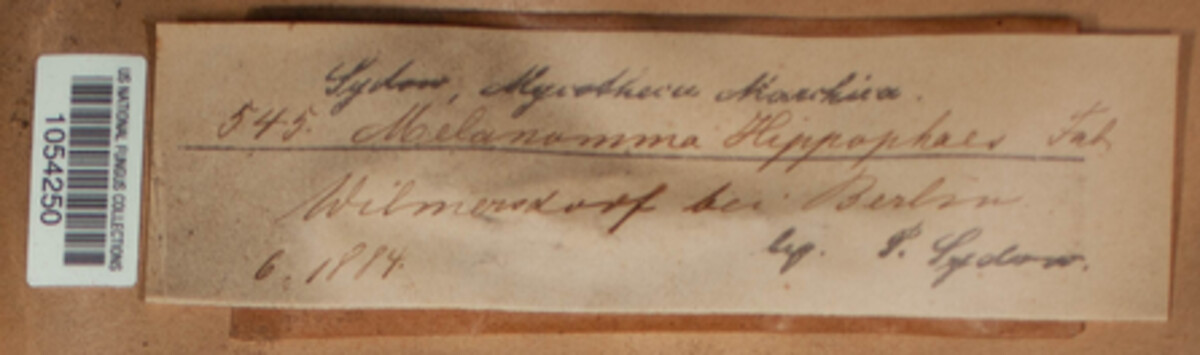 Sydow, Mycotheca Marchica.
545. Melanomma Hippophaes Fab.
Wilmersdorf bei Berlin
6. 1884.
leg. P. Sydow.
US NATIONAL FUNGUS COLLECTIONS
1054250